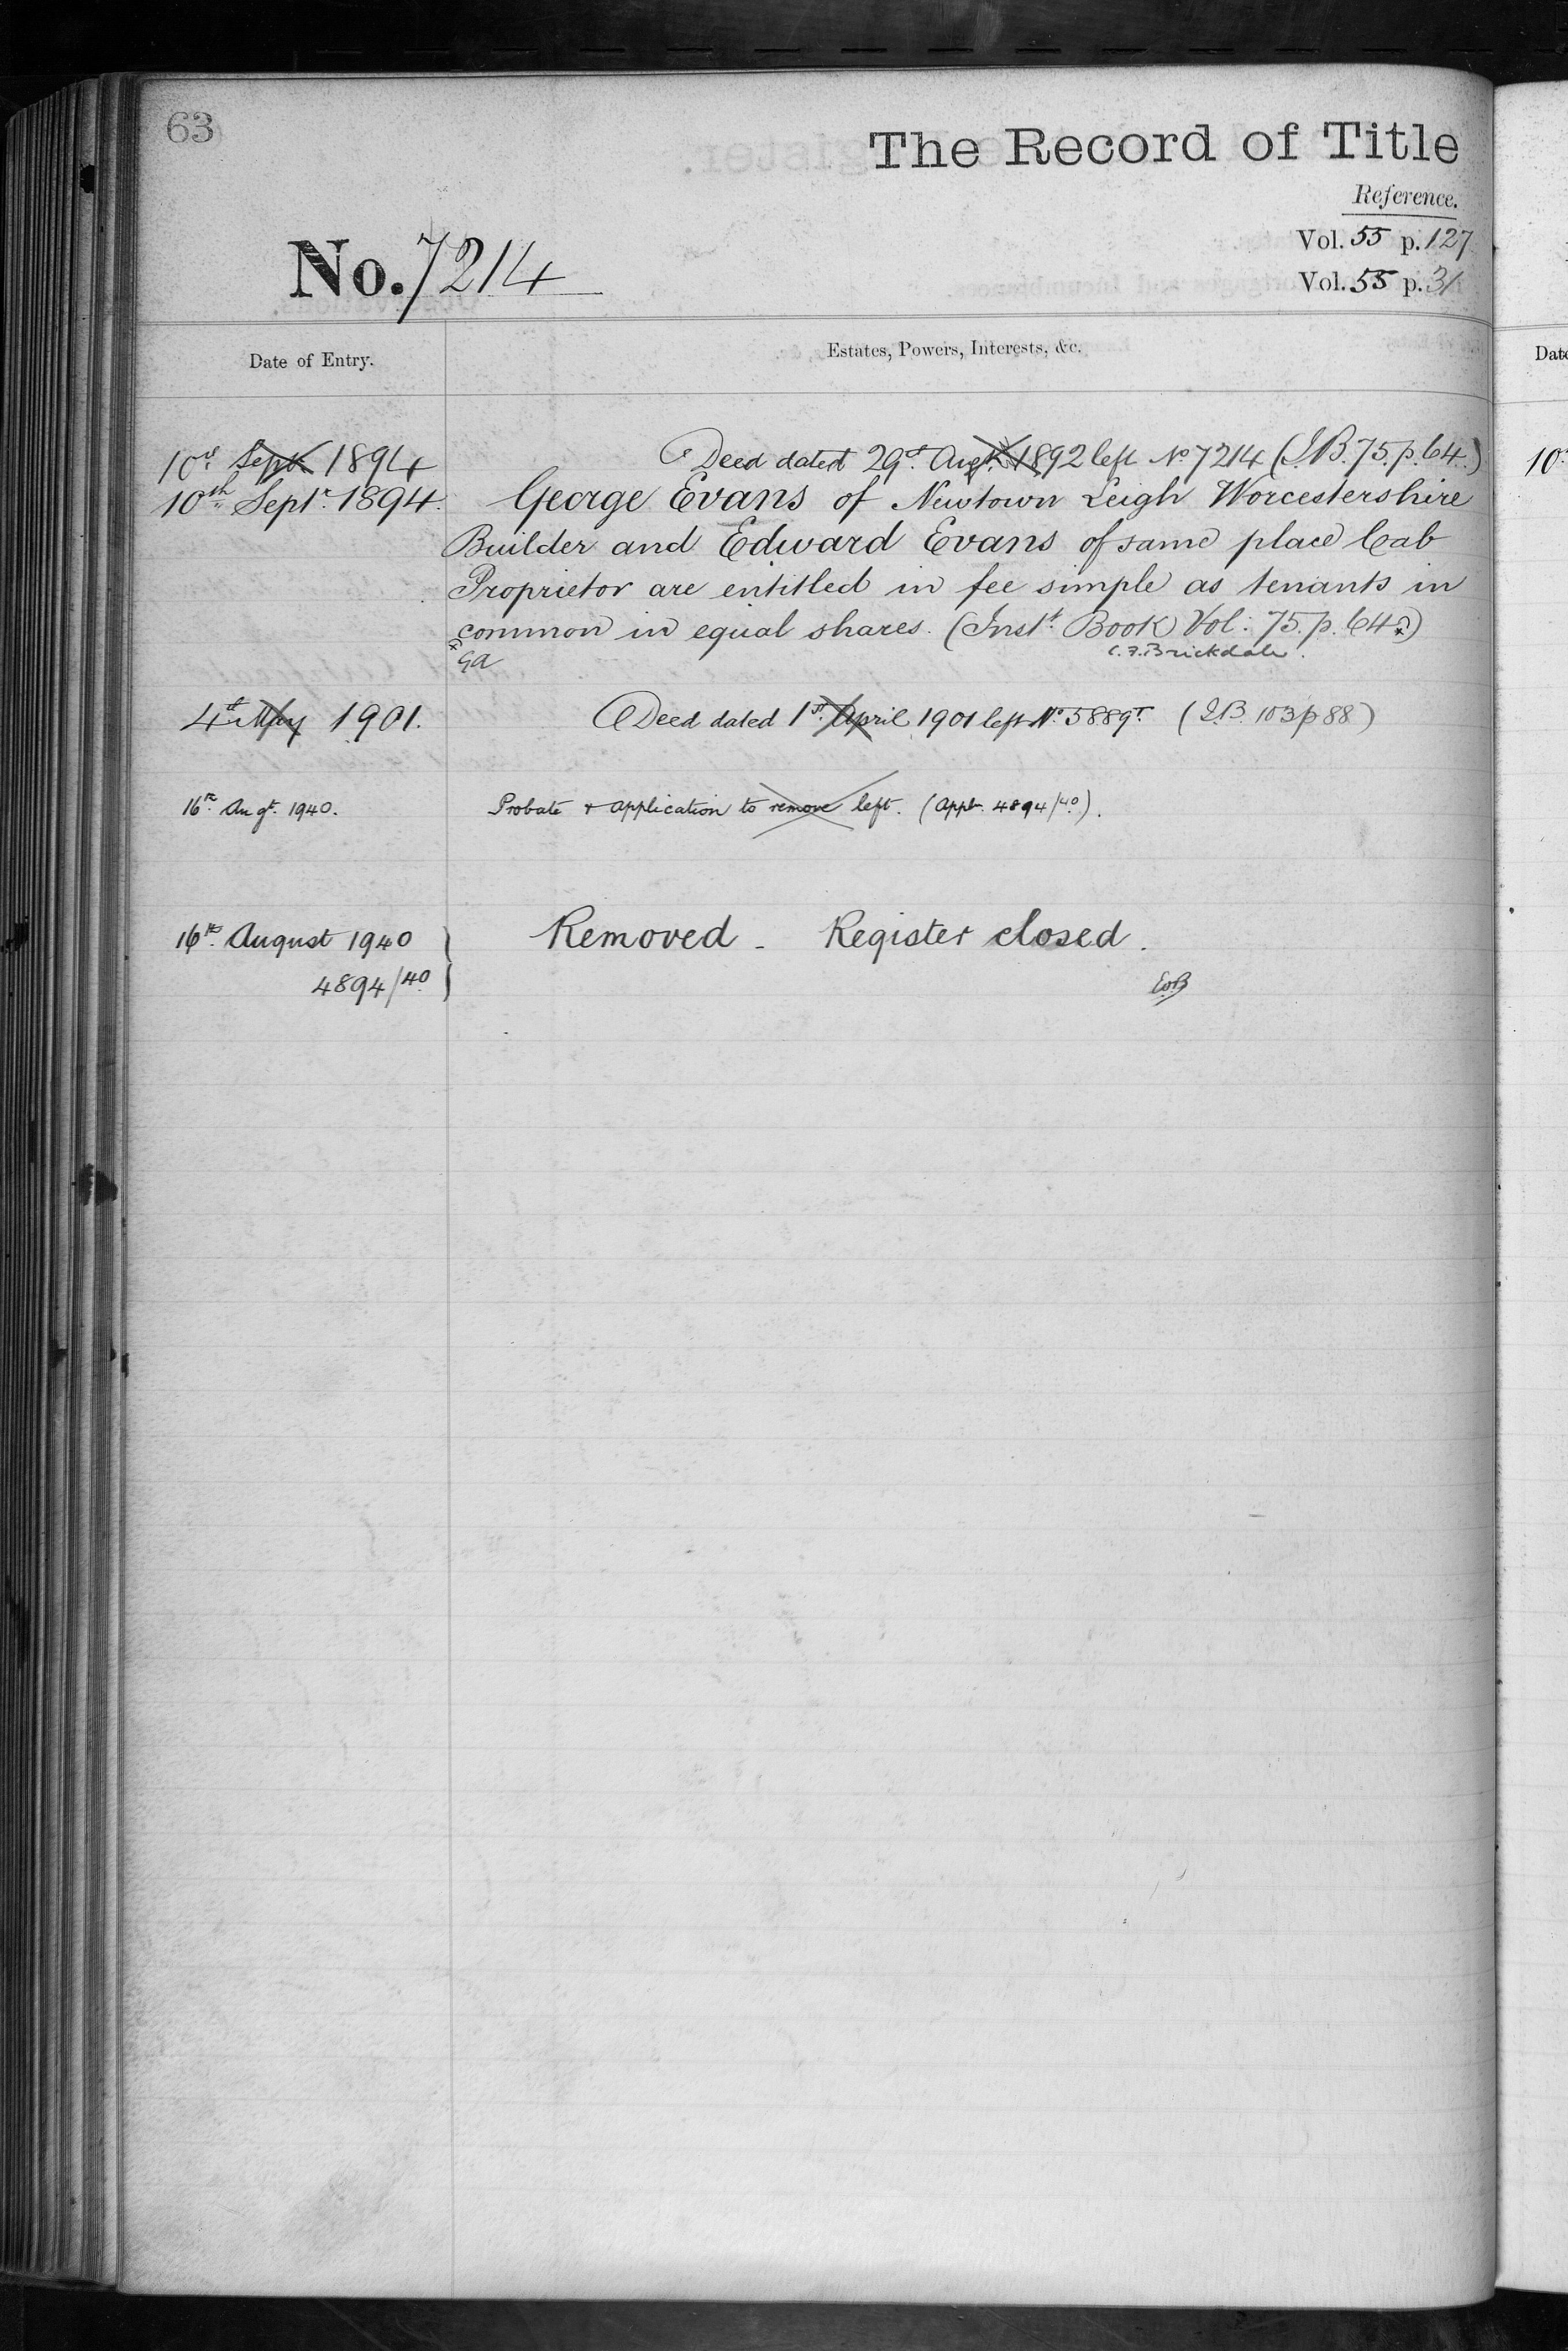 63
The Record of Title
Reference.
No. 7214
Vol. 55 p. 127
Vol. 55 p. 31
Date of Entry.
Estates, Powers, Interests, &c.
10th Sept. 1894 Deed dated 29th Augt. 1892 left No 7214 (I.B. 75. p. 64.)
10th Septr. 1894. George Evans of Newtown Leigh Worcestershire
Builder and Edward Evans of same place Cab
Proprietor are entitled in fee simple as tenants in
common in equal shares. (Inst. Book Vol: 75. p. 64.)
C.F. Brickdale.
4th May 1901. Deed dated 1st. April 1901 left No. 5889T (I.B. 103 p 88)
16th Augt. 1940. Probate & Application to remove left. (Appn. 4894/40).
16th August 1940 Removed - Register closed.
4894/40
Date
10